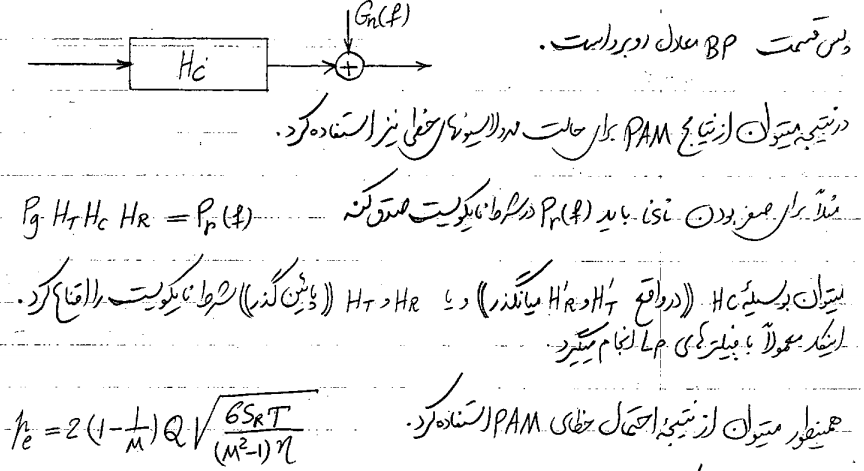 Gn(f)
Hc
پس قسمت BP معادل روبرو است.
در نتیجه میتوان از نتایج PAM برای حالت مدولاسیونهای خطی نیز استفاده کرد.
مثلاً برای صفر بودن تداخل باید Pr(f) در شرط نایکویست صدق کند Pg HT Hc HR = Pr(f)
میتوان بوسیلهٔ HC ((در واقع H'T و H'R میانگذر)) و یا HR و HT ((پائین گذر)) شرط نایکویست را اقناع کرد.
اینکار معمولاً با فیلترهای LP انجام میگیرد
همینطور میتوان از نتیجهٔ احتمال خطای PAM استفاده کرد. Pe = 2(1-1/M) Q √(6SRT/((M²-1)η))